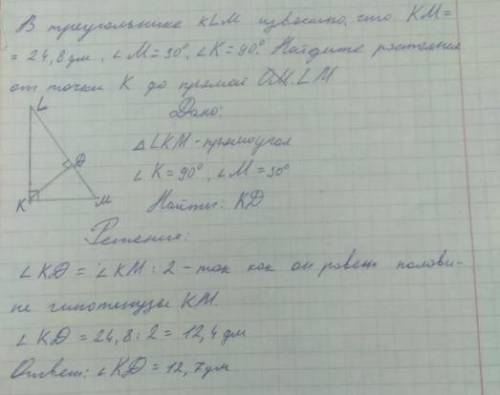 В треугольнике KLM известно, что KM=
= 24,8 дм, ∠M=30°, ∠K=90°. Найдите растояние
от точки K до прямой LM
L
D
K
M
Дано:
△LKM - прямоугол
∠K=90°, ∠M=30°
Найти: KD
Решения:
∠KD = ∠KM : 2 - так как он равен полови-
не гипотенузы KM.
∠KD = 24,8 : 2 = 12,4 дм
Ответ: ∠KD = 12,7 дм